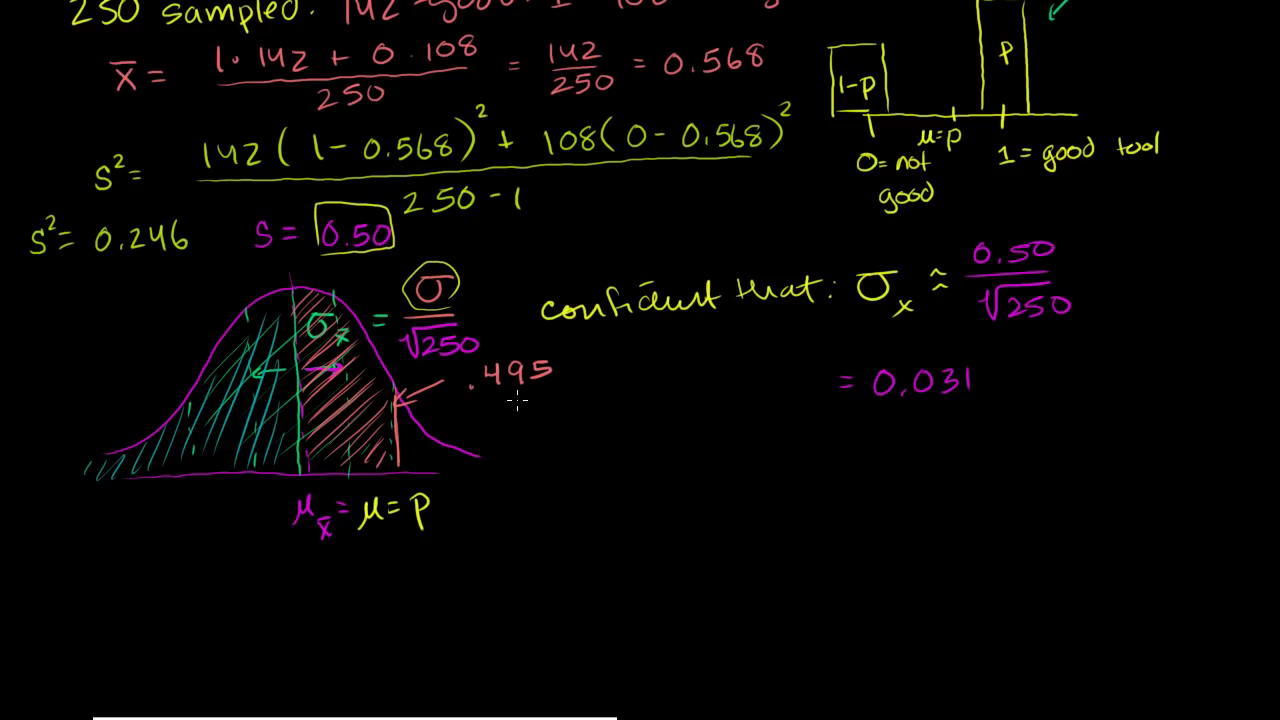 250 sampled.
x̄ = 1·142 + 0·108 / 250 = 142/250 = 0.568
S² = 142(1-0.568)² + 108(0-0.568)² / 250-1
S² = 0.246 S = 0.50
1-p
p
μ=p
0=not good
1=good tool
σx̄ = σ/√250
confident that: σx ≈ 0.50/√250
.495
= 0.031
μx̄ = μ = p